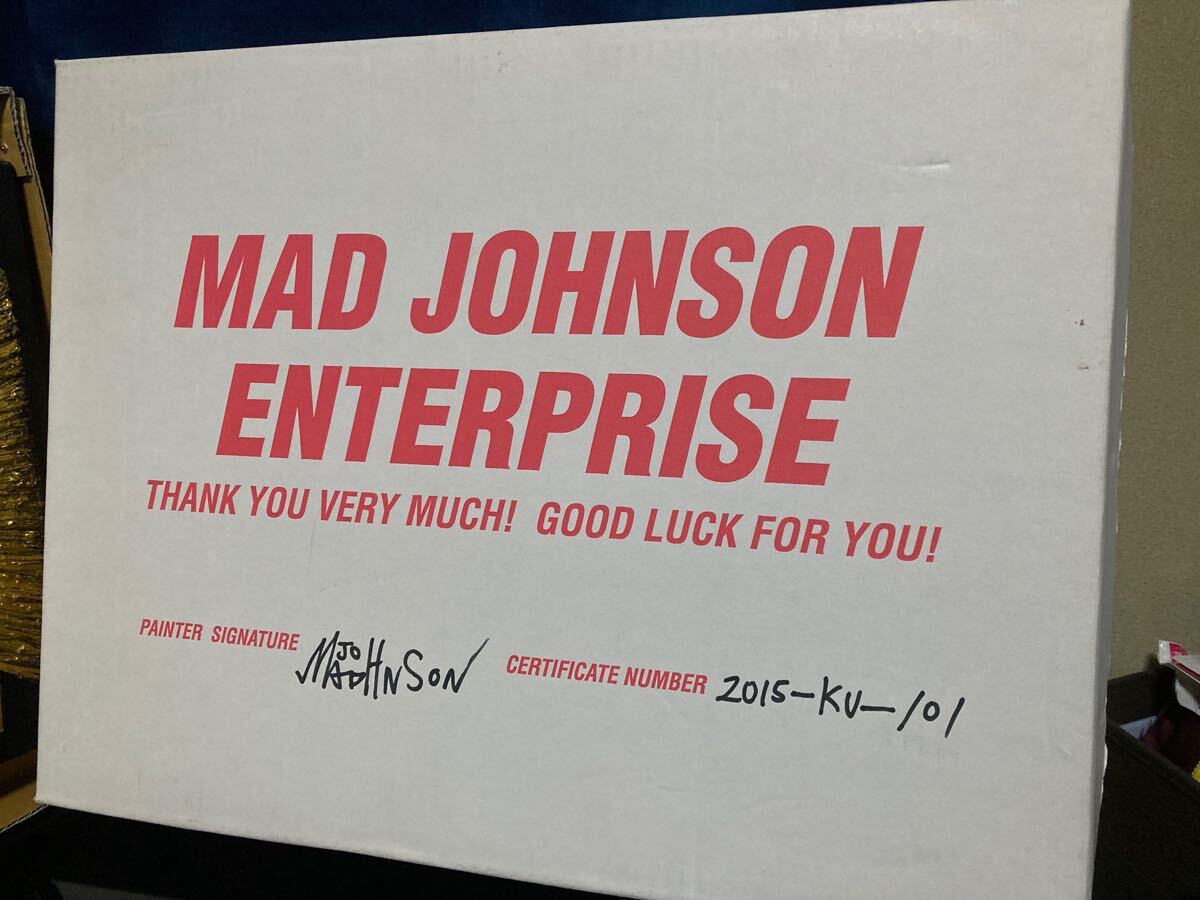 MAD JOHNSON
ENTERPRISE
THANK YOU VERY MUCH! GOOD LUCK FOR YOU!
PAINTER SIGNATURE MAD JOHNSON CERTIFICATE NUMBER 2015-KU-101